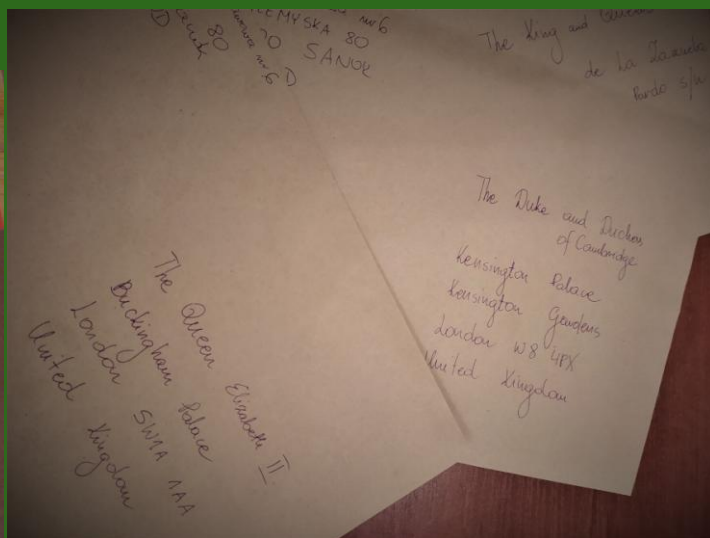 nr 6
EMYSKA 80
SANOK
80
nr 6
The King and
de La Zarzuela
Pardo s/n
The Duke and Duchess
of Cambridge
Kensington Palace
Kensington Gardens
London W8 4PX
United Kingdom
The Queen Elizabeth II
Buckingham Palace
London SW1A 1AA
United Kingdom